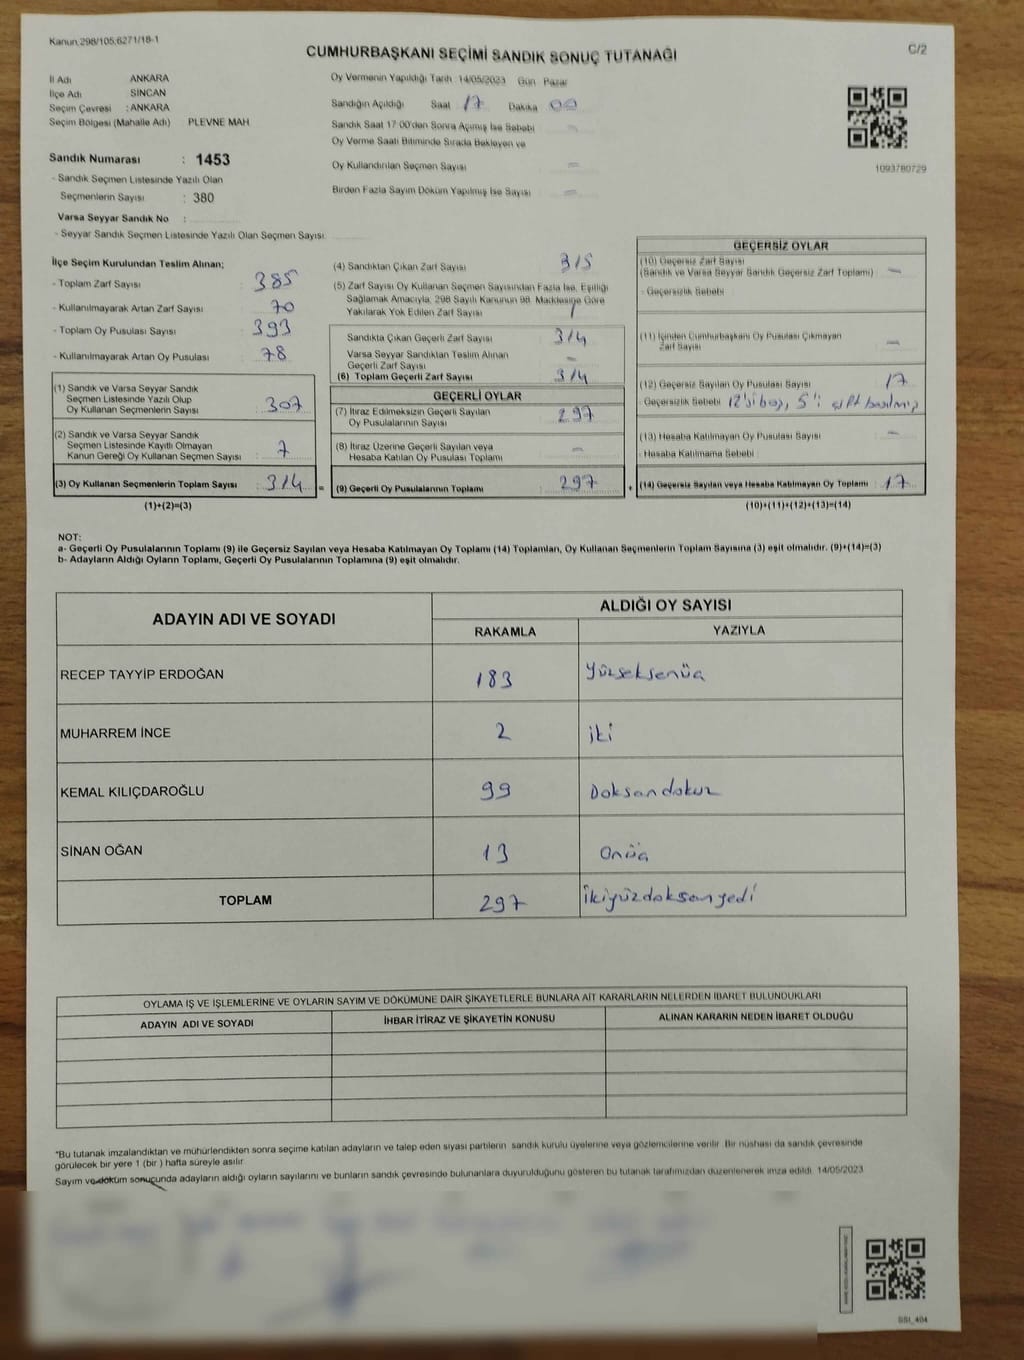 Kanun 298/105;6271/18-1
C/2
CUMHURBAŞKANI SEÇİMİ SANDIK SONUÇ TUTANAĞI
İl Adı ANKARA
İlçe Adı SİNCAN
Seçim Çevresi : ANKARA
Seçim Bölgesi (Mahalle Adı) PLEVNE MAH
Sandık Numarası : 1453
- Sandık Seçmen Listesinde Yazılı Olan
Seçmenlerin Sayısı : 380
Varsa Seyyar Sandık No :
- Seyyar Sandık Seçmen Listesinde Yazılı Olan Seçmen Sayısı:
Oy Vermenin Yapıldığı Tarih :14/05/2023 Gün Pazar
Sandığın Açıldığı Saat 17 Dakika 00
Sandık Saat 17:00'den Sonra Açılmış İse Sebebi -
Oy Verme Saati Bitiminde Sırada Bekleyen ve
Oy Kullandırılan Seçmen Sayısı =
Birden Fazla Sayım Döküm Yapılmış İse Sayısı =
1093780729
İlçe Seçim Kurulundan Teslim Alınan;
- Toplam Zarf Sayısı : 385
- Kullanılmayarak Artan Zarf Sayısı : 70
- Toplam Oy Pusulası Sayısı : 393
- Kullanılmayarak Artan Oy Pusulası : 78
(1) Sandık ve Varsa Seyyar Sandık
Seçmen Listesinde Yazılı Olup
Oy Kullanan Seçmenlerin Sayısı : 307
(2) Sandık ve Varsa Seyyar Sandık
Seçmen Listesinde Kayıtlı Olmayan
Kanun Gereği Oy Kullanan Seçmen Sayısı : 7
(3) Oy Kullanan Seçmenlerin Toplam Sayısı : 314
(1)+(2)=(3)
(4) Sandıktan Çıkan Zarf Sayısı 315
(5) Zarf Sayısı Oy Kullanan Seçmen Sayısından Fazla İse, Eşitliği
Sağlamak Amacıyla, 298 Sayılı Kanunun 98. Maddesine Göre
Yakılarak Yok Edilen Zarf Sayısı 1
Sandıkta Çıkan Geçerli Zarf Sayısı 314
Varsa Seyyar Sandıktan Teslim Alınan
Geçerli Zarf Sayısı -
(6) Toplam Geçerli Zarf Sayısı 314
GEÇERLİ OYLAR
(7) İtiraz Edilmeksizin Geçerli Sayılan
Oy Pusulalarının Sayısı : 297
(8) İtiraz Üzerine Geçerli Sayılan veya
Hesaba Katılan Oy Pusulası Toplamı -
= (9) Geçerli Oy Pusulalarının Toplamı : 297
GEÇERSİZ OYLAR
(10) Geçersiz Zarf Sayısı
(Sandık ve Varsa Seyyar Sandık Geçersiz Zarf Toplamı) -
- Geçersizlik Sebebi :
(11) İçinden Cumhurbaşkanı Oy Pusulası Çıkmayan
Zarf Sayısı -
(12) Geçersiz Sayılan Oy Pusulası Sayısı 17
- Geçersizlik Sebebi 12'si boş, 5'i çift basılmış
(13) Hesaba Katılmayan Oy Pusulası Sayısı -
- Hesaba Katılmama Sebebi :
+ (14) Geçersiz Sayılan veya Hesaba Katılmayan Oy Toplamı : 17
(10)+(11)+(12)+(13)=(14)
NOT:
a- Geçerli Oy Pusulalarının Toplamı (9) ile Geçersiz Sayılan veya Hesaba Katılmayan Oy Toplamı (14) Toplamları, Oy Kullanan Seçmenlerin Toplam Sayısına (3) eşit olmalıdır. (9)+(14)=(3)
b- Adayların Aldığı Oyların Toplamı, Geçerli Oy Pusulalarının Toplamına (9) eşit olmalıdır.
ADAYIN ADI VE SOYADI
ALDIĞI OY SAYISI
RAKAMLA YAZIYLA
RECEP TAYYİP ERDOĞAN 183 Yüzseksenüç
MUHARREM İNCE 2 iki
KEMAL KILIÇDAROĞLU 99 Doksandokuz
SİNAN OĞAN 13 Onüç
TOPLAM 297 ikiyüzdoksanyedi
OYLAMA İŞ VE İŞLEMLERİNE VE OYLARIN SAYIM VE DÖKÜMÜNE DAİR ŞİKAYETLERLE BUNLARA AİT KARARLARIN NELERDEN İBARET BULUNDUKLARI
ADAYIN ADI VE SOYADI İHBAR İTİRAZ VE ŞİKAYETİN KONUSU ALINAN KARARIN NEDEN İBARET OLDUĞU
*Bu tutanak imzalandıktan ve mühürlendikten sonra seçime katılan adayların ve talep eden siyasi partilerin sandık kurulu üyelerine veya gözlemcilerine verilir. Bir nüshası da sandık çevresinde
görülecek bir yere 1 (bir ) hafta süreyle asılır.
Sayım ve döküm sonucunda adayların aldığı oyların sayılarını ve bunların sandık çevresinde bulunanlara duyurulduğunu gösteren bu tutanak tarafımızdan düzenlenerek imza edildi. 14/05/2023
SSI_404